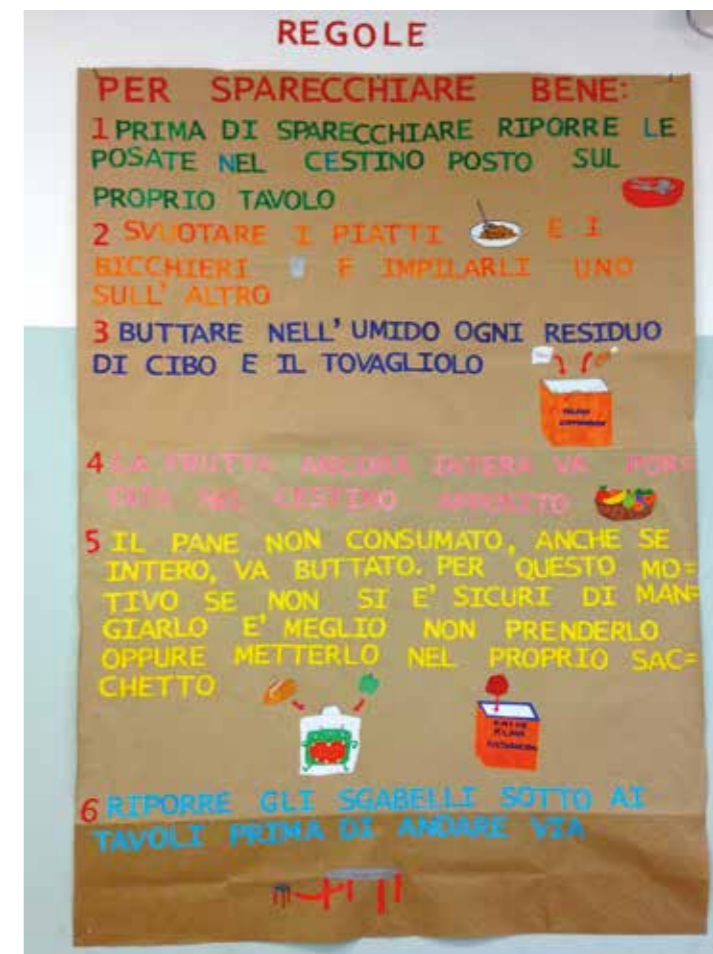 REGOLE
PER SPARECCHIARE BENE:
1 PRIMA DI SPARECCHIARE RIPORRE LE
POSATE NEL CESTINO POSTO SUL
PROPRIO TAVOLO
2 SVUOTARE I PIATTI E I
BICCHIERI E IMPILARLI UNO
SULL' ALTRO
3 BUTTARE NELL' UMIDO OGNI RESIDUO
DI CIBO E IL TOVAGLIOLO
4 LA FRUTTA ANCORA INTERA VA POR=
TATA NEL CESTINO APPOSITO
5 IL PANE NON CONSUMATO, ANCHE SE
INTERO, VA BUTTATO. PER QUESTO MO=
TIVO SE NON SI E' SICURI DI MAN=
GIARLO E' MEGLIO NON PRENDERLO
OPPURE METTERLO NEL PROPRIO SAC=
CHETTO
6 RIPORRE GLI SGABELLI SOTTO AI
TAVOLI PRIMA DI ANDARE VIA